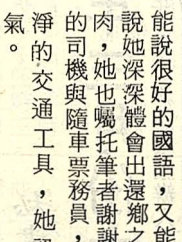 能說很好的國語，又能
說她深深體會出還鄉之
肉，她也囑托筆者謝謝
的司機與隨車票務員，
淨的交通工具，她
氣。